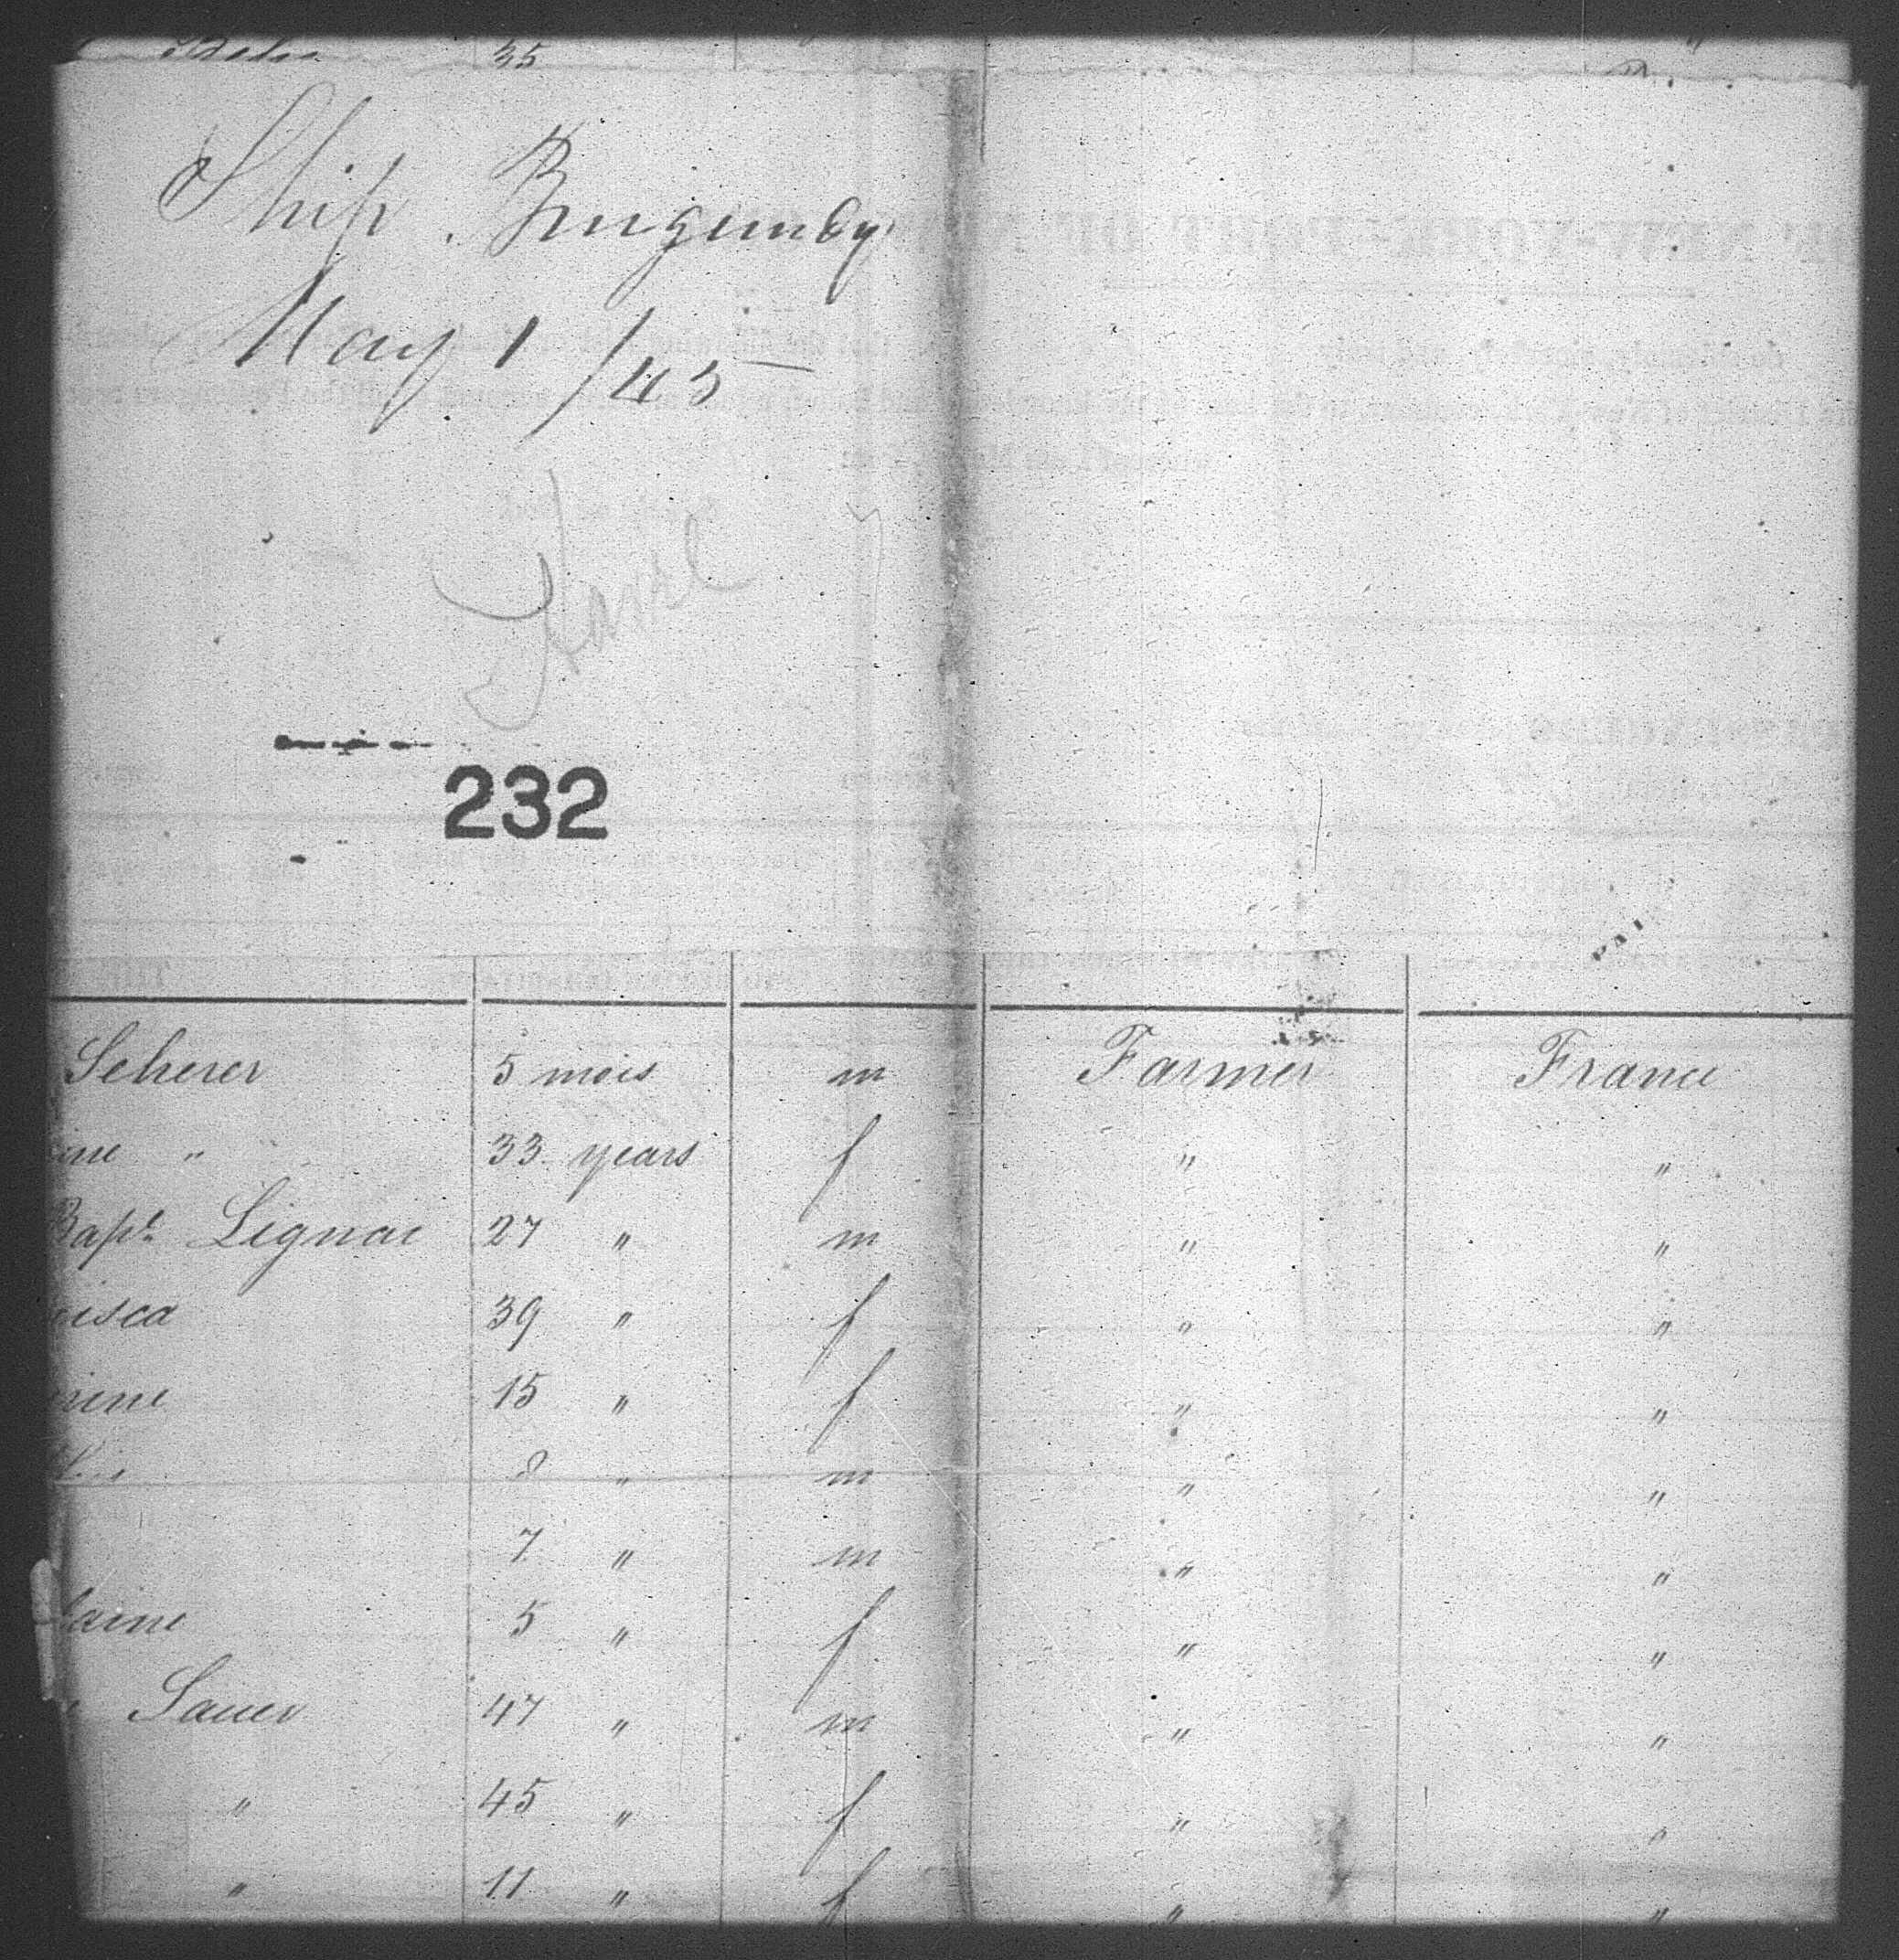 35
Ship Burgundy
May 1/45
Havre
232
Scherer 5 mois m Farmer France
ine " 33 years f " "
Bapt Lignac 27 " m " "
cisca 39 " f " "
15 " f " "
8 " m " "
7 " m " "
laine 5 " f " "
Sauer 47 " m " "
" 45 " f " "
" 11 " f " "